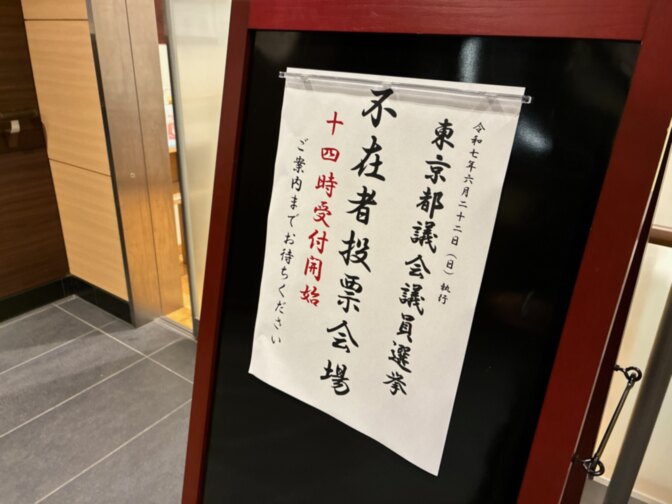 令和七年六月二十二日（日）執行
東京都議会議員選挙
不在者投票会場
十四時受付開始
ご案内までお待ちください